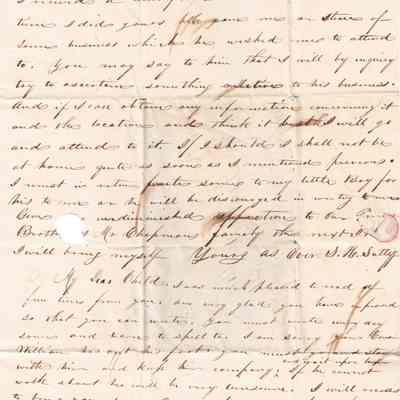 time I did yours. me on
some business which he wished me to attend
to. You may say to him that I will by inquiry
try to ascertain something relative to his business.
And if I can obtain any information concerning it
and the location and think it best I will go
and attend to it. If I should I shall not be
at home quite as soon as I mentioned previous.
I must in return write some to my little Boy for
his to me or he will be discouraged in writing
undiminished affection to Our
Brother Mr Chapman family the next
I will bring myself Yours as Ever S. H.
My Dear Child. I was much pleased to read a
few lines from you. am very glad you have improved
so that you can write. you must write every day
some and learn to spell too. I am sorry your
William has got his foot you must stay
with him and keep him company; If he cannot
walk about he will be very lonesome. I will